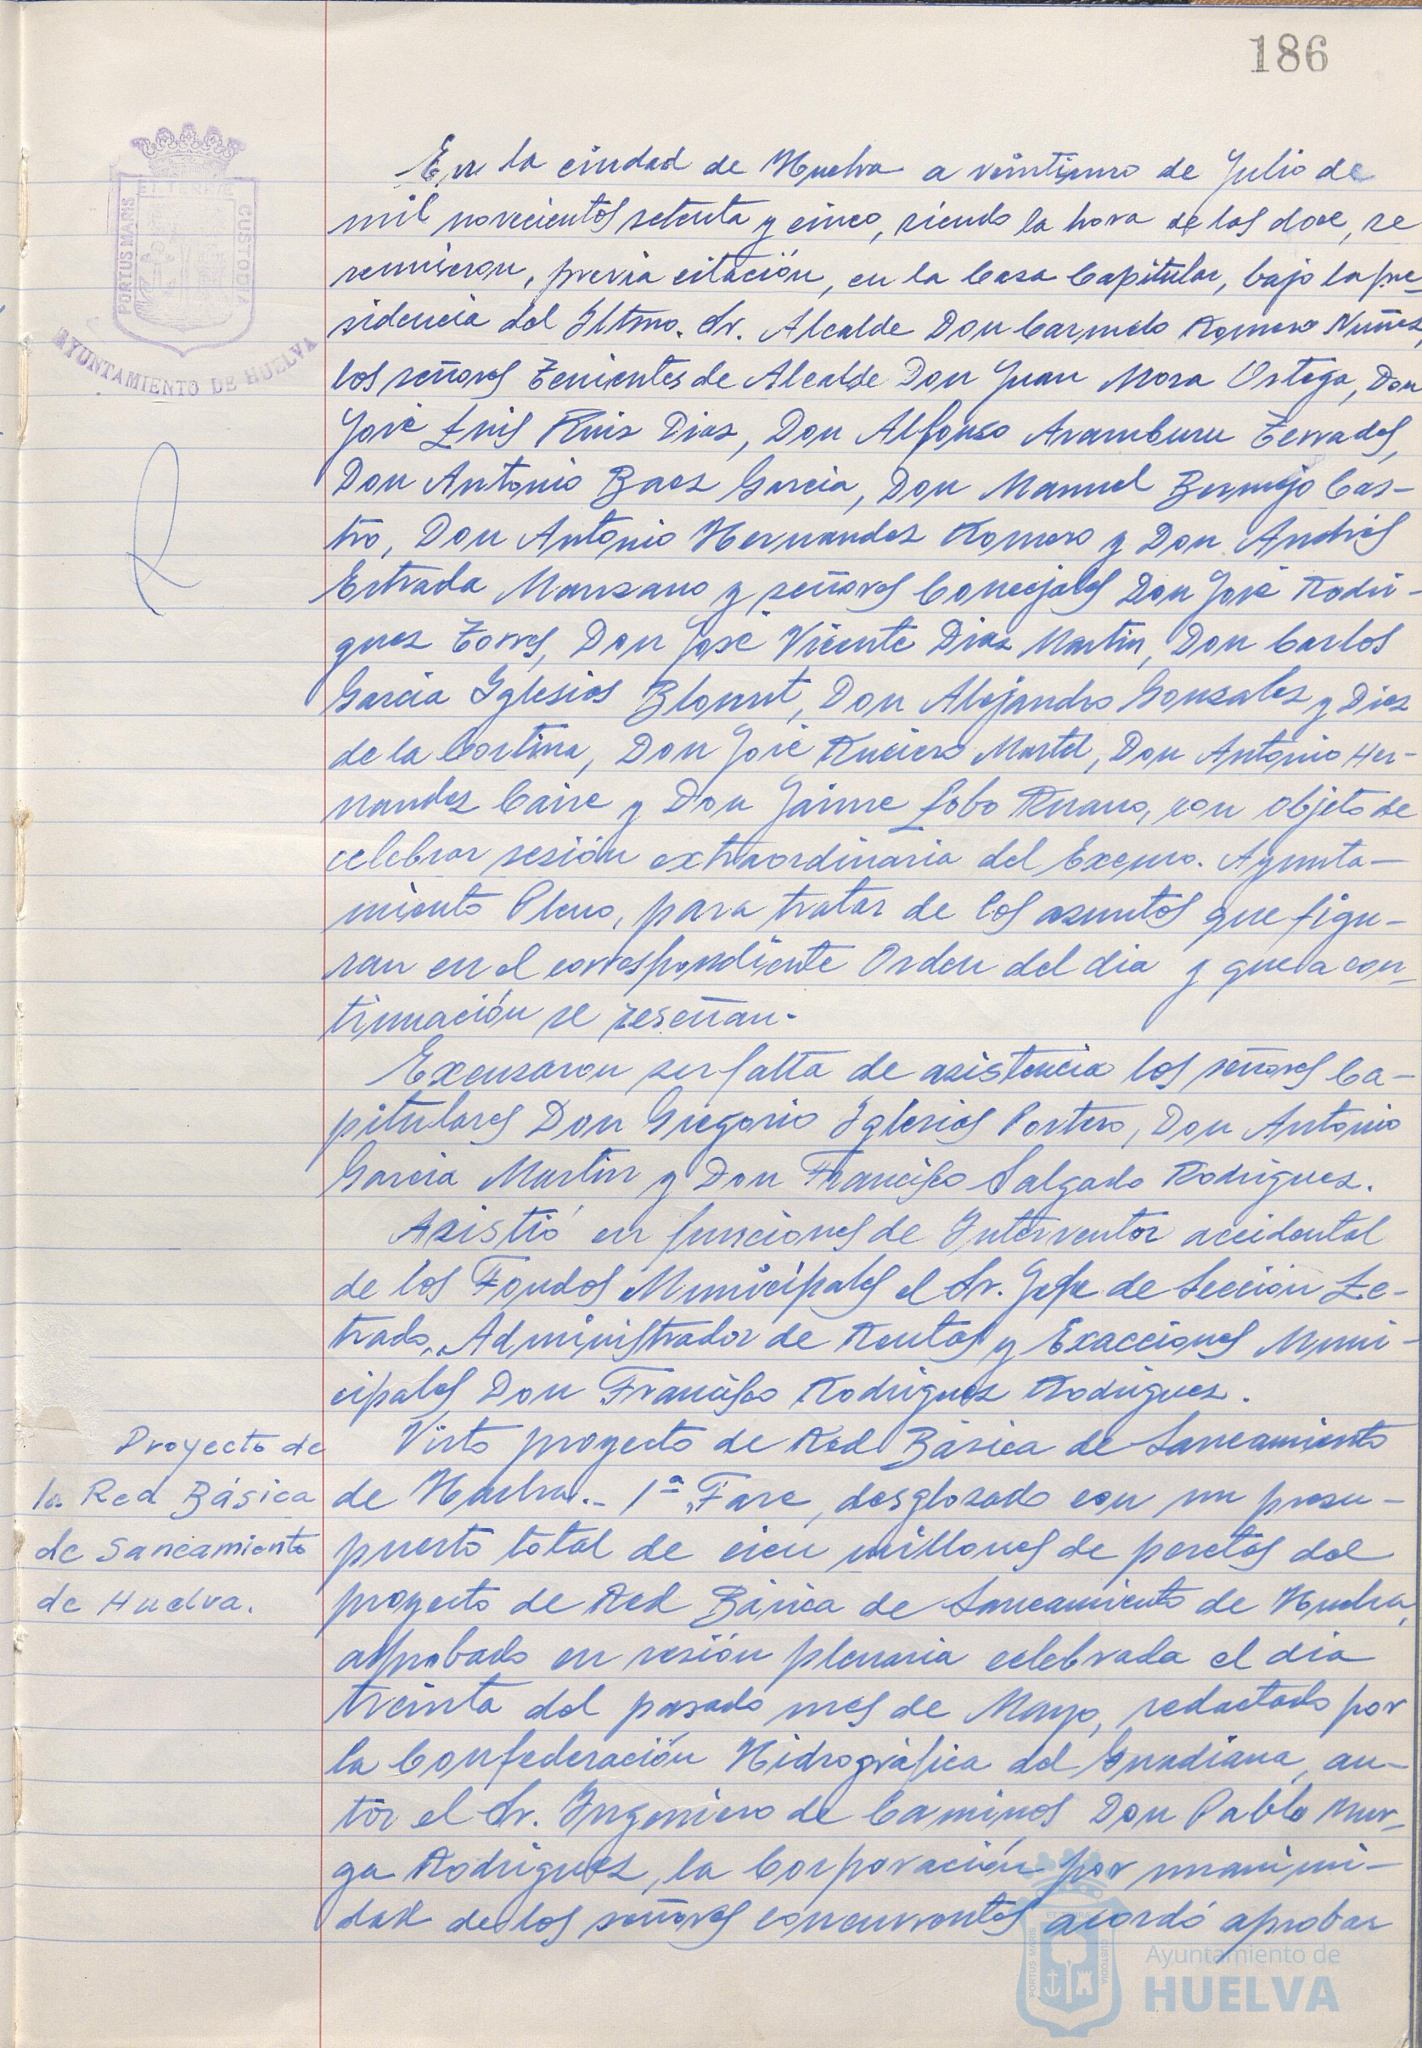 186
ET TERRAE
PORTUS MARIS
CUSTODIA
AYUNTAMIENTO DE HUELVA
En la ciudad de Huelva a veintiuno de Julio de
mil novecientos setenta y cinco, siendo la hora de las doce, se
reunieron, previa citación, en la Casa Capitular, bajo la pre-
sidencia del Iltmo. Sr. Alcalde Don Carmelo Romero Nuñez,
los señores Tenientes de Alcalde Don Juan Mora Ortega, Don
José Luis Ruiz Diaz, Don Alfonso Aramburu Terrades,
Don Antonio Baez Garcia, Don Manuel Bermejo Cas-
tro, Don Antonio Hernandez Romero y Don Andrés
Estrada Manzano y señores Concejales Don José Rodri-
guez Torres, Don José Vicente Diaz Martin, Don Carlos
Garcia Iglesias Blount, Don Alejandro Gonzalez y Diez
de la Cortina, Don José Martel, Don Antonio Her-
nandez y Don Jaime Lobo con objeto de
celebrar sesión extraordinaria del Excmo. Ayunta-
miento Pleno, para tratar de los asuntos que figu-
ran en el correspondiente Orden del dia y que a con-
tinuación se reseñan.
Excusaron su falta de asistencia los señores Ca-
pitulares Don Gregorio Iglesias Portero, Don Antonio
Garcia Martin y Don Francisco Salgado Rodriguez.
Asistió en funciones de Interventor accidental
de los Fondos Municipales el Sr. Jefe de Sección Le-
trado, Administrador de Rentas y Exacciones Muni-
cipales Don Francisco Rodriguez Rodriguez.
Proyecto de
la Red Básica
de Saneamiento
de Huelva.
Visto proyecto de Red Básica de Saneamiento
de Huelva.- 1ª Fase, desglosado con un presu-
puesto total de cien millones de pesetas del
proyecto de Red Básica de Saneamiento de Huelva,
aprobado en sesión plenaria celebrada el dia
treinta del pasado mes de Mayo, redactado por
la Confederación Hidrográfica del Guadiana, au-
tor el Sr. Ingeniero de Caminos Don Pablo Mur-
ga Rodriguez, la Corporación por unanimi-
dad de los señores concurrentes acordó aprobar
ET TERRAE
PORTUS MARIS
CUSTODIA
Ayuntamiento de
HUELVA